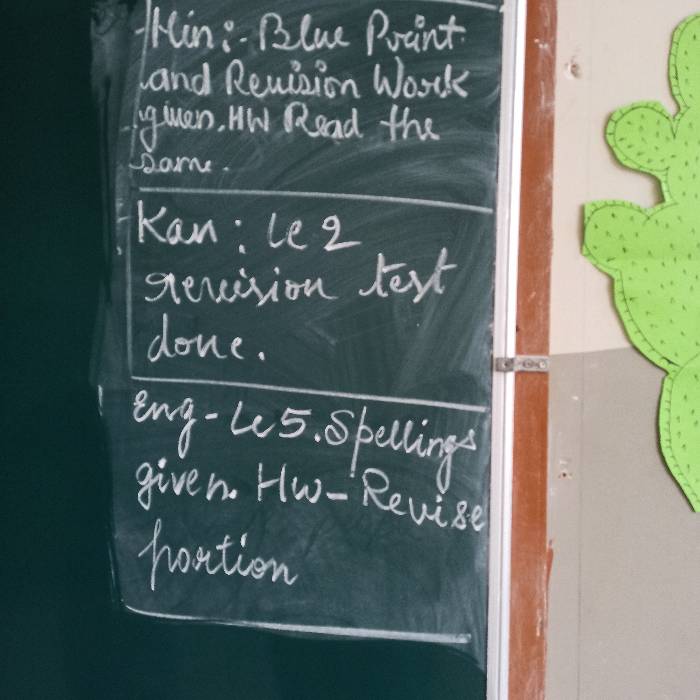 Hin:- Blue Print
and Revision Work
given. HW Read the
same.
Kan: Le 2
revision test
done.
Eng - Le 5. Spellings
given. HW - Revise
portion